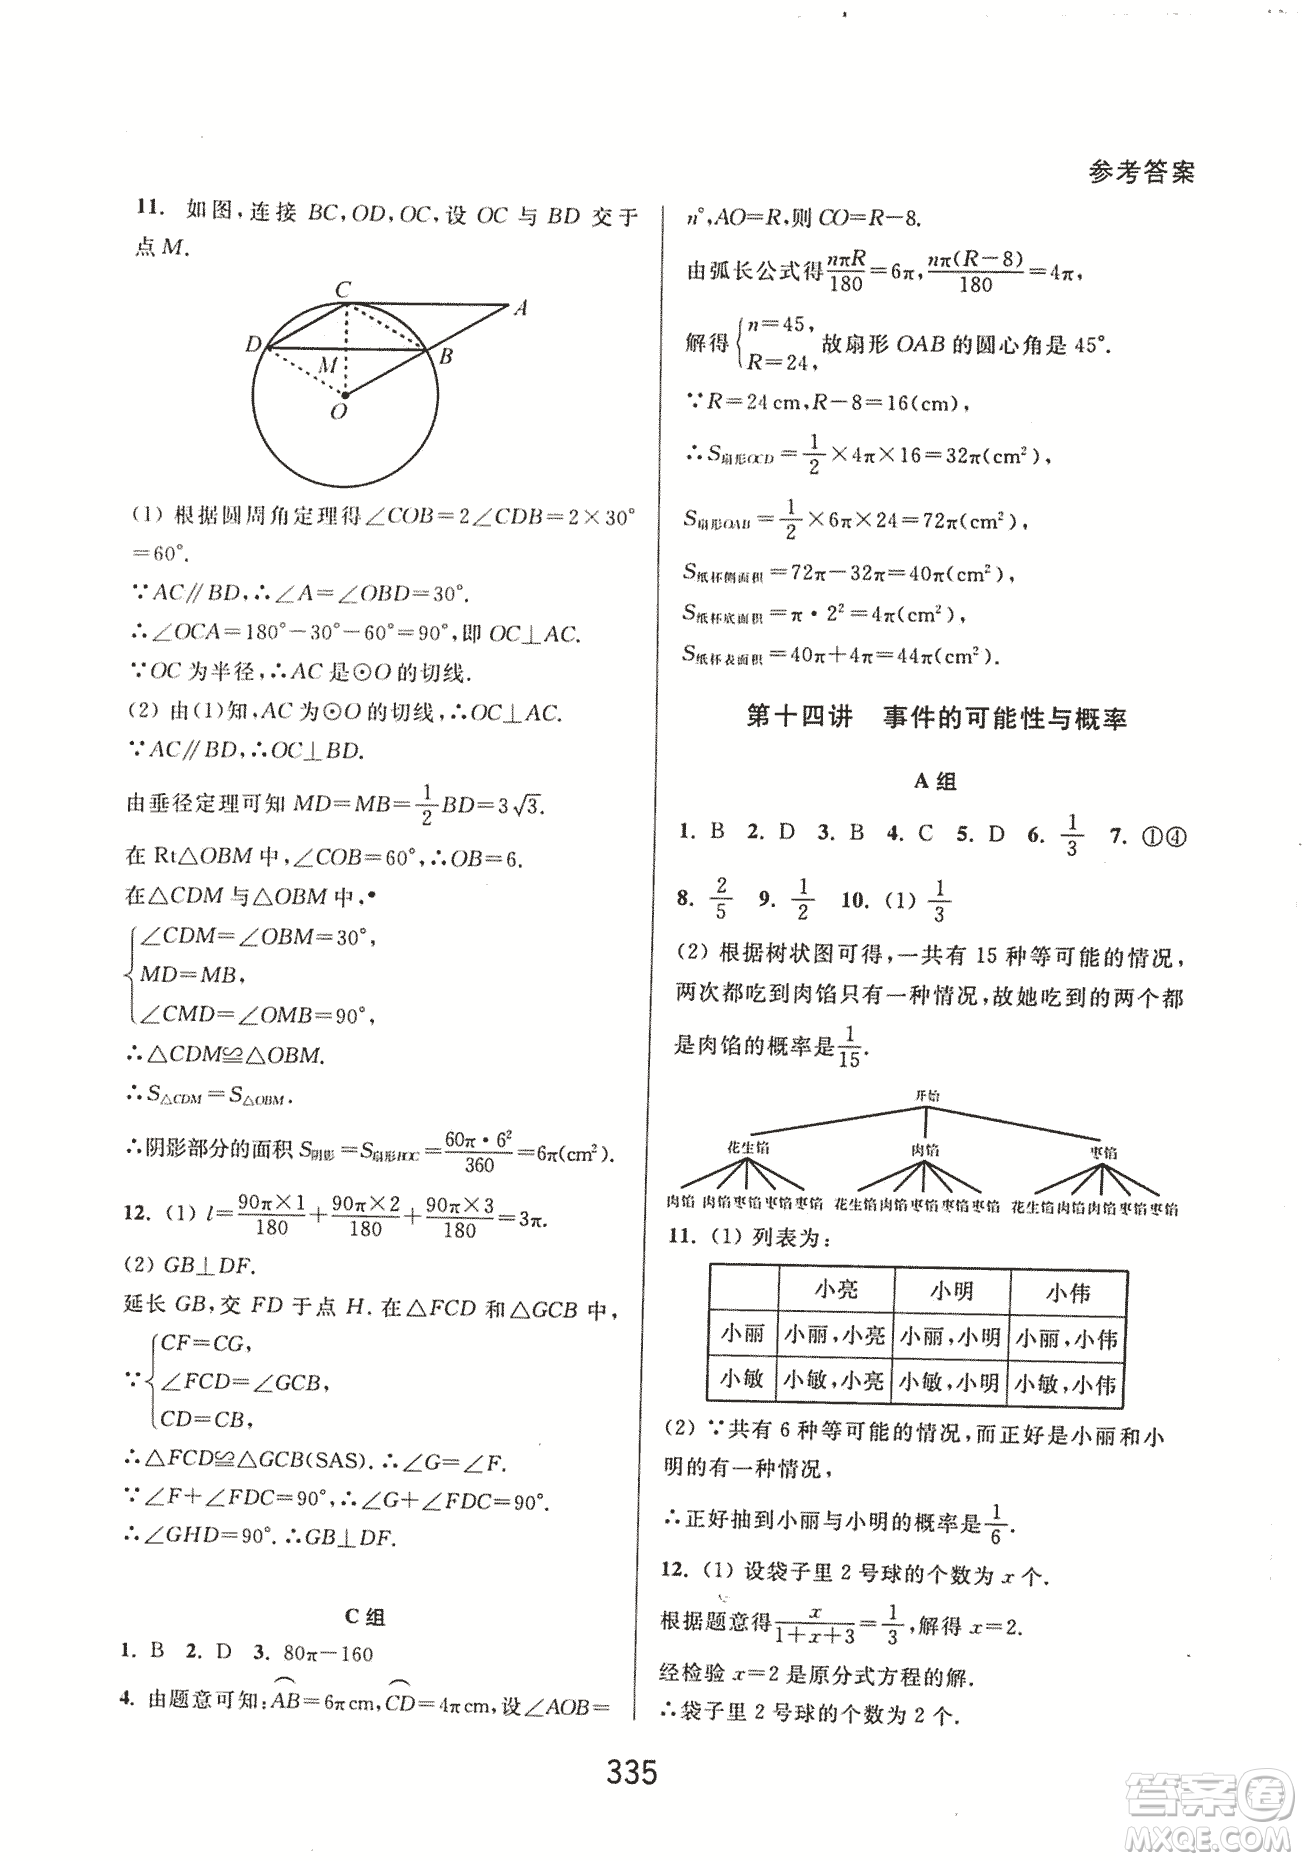 参考答案
11. 如图,连接 BC,OD,OC,设 OC 与 BD 交于
点 M.
C
A
D
M
B
O
(1) 根据圆周角定理得∠COB=2∠CDB=2×30°
=60°.
∵AC∥BD,∴∠A=∠OBD=30°.
∴∠OCA=180°-30°-60°=90°,即 OC⊥AC.
∵OC 为半径,∴AC 是⊙O 的切线.
(2) 由(1)知,AC 为⊙O 的切线,∴OC⊥AC.
∵AC∥BD,∴OC⊥BD.
由垂径定理可知 MD=MB=1/2BD=3√3.
在 Rt△OBM 中,∠COB=60°,∴OB=6.
在△CDM 与△OBM 中,
{∠CDM=∠OBM=30°,
MD=MB,
∠CMD=∠OMB=90°,
∴△CDM≌△OBM.
∴S△CDM=S△OBM.
∴阴影部分的面积 S阴影=S扇形BOC=60π·6²/360=6π(cm²).
12. (1) l=90π×1/180+90π×2/180+90π×3/180=3π.
(2) GB⊥DF.
延长 GB,交 FD 于点 H. 在△FCD 和△GCB 中,
∵{CF=CG,
∠FCD=∠GCB,
CD=CB,
∴△FCD≌△GCB(SAS). ∴∠G=∠F.
∵∠F+∠FDC=90°,∴∠G+∠FDC=90°.
∴∠GHD=90°. ∴GB⊥DF.
C 组
1. B 2. D 3. 80π-160
4. 由题意可知:⌒AB=6πcm,⌒CD=4πcm,设∠AOB=
n°,AO=R,则 CO=R-8.
由弧长公式得nπR/180=6π,nπ(R-8)/180=4π,
解得{n=45,
R=24,故扇形 OAB 的圆心角是 45°.
∵R=24cm,R-8=16(cm),
∴S扇形OCD=1/2×4π×16=32π(cm²),
S扇形OAB=1/2×6π×24=72π(cm²),
S纸杯侧面积=72π-32π=40π(cm²),
S纸杯底面积=π·2²=4π(cm²),
S纸杯表面积=40π+4π=44π(cm²).
第十四讲 事件的可能性与概率
A 组
1. B 2. D 3. B 4. C 5. D 6. 1/3 7. ①④
8. 2/5 9. 1/2 10. (1) 1/3
(2) 根据树状图可得,一共有 15 种等可能的情况,
两次都吃到肉馅只有一种情况,故她吃到的两个都
是肉馅的概率是1/15.
开始
花生馅 肉馅 枣馅
肉馅 肉馅枣馅枣馅枣馅 花生馅肉馅枣馅枣馅枣馅 花生馅肉馅肉馅枣馅枣馅
11. (1) 列表为:
小亮 小明 小伟
小丽 小丽,小亮 小丽,小明 小丽,小伟
小敏 小敏,小亮 小敏,小明 小敏,小伟
(2) ∵共有 6 种等可能的情况,而正好是小丽和小
明的有一种情况,
∴正好抽到小丽与小明的概率是1/6.
12. (1) 设袋子里 2 号球的个数为 x 个.
根据题意得x/1+x+3=1/3,解得 x=2.
经检验 x=2 是原分式方程的解.
∴袋子里 2 号球的个数为 2 个.
335
答案圈
MXQE.COM